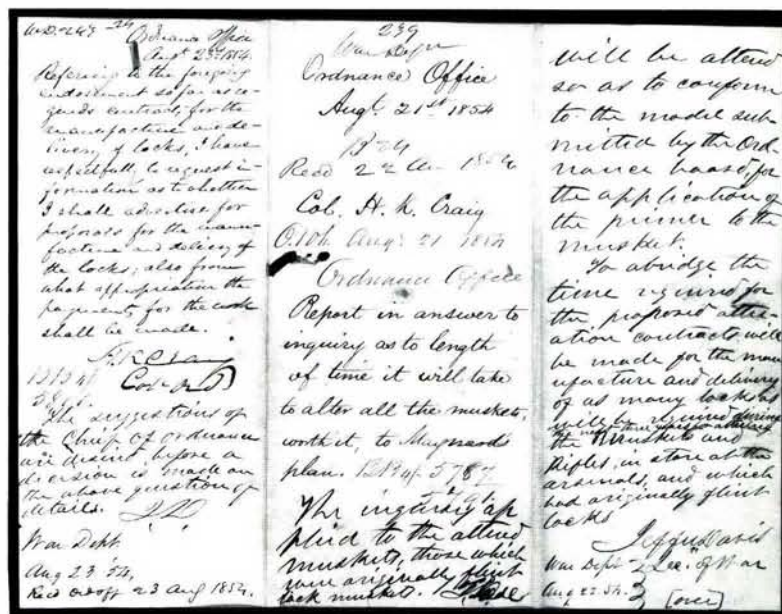 Ordnance Office
Aug. 23d 1854.
Referring to the foregoing
endorsement so far as re-
gards contracts for the
manufacture and de-
livery of locks, I have
respectfully to request in-
formation as to whether
I shall advertise for
proposals for the manu-
facture and delivery of
the locks; also from
what appropriation the
payments for the work
shall be made.
H. K. Craig
Col. Ord
The suggestions of
the Chief of ordnance
are desired before a
decision is made on
the above question of
details.
War Dept.
Aug 23 '54.
Recd 23 Aug 1854.
239
War Dept
Ordnance Office
Augt. 21st 1854
Recd 1854
Col. H. K. Craig
O. Aug. 21 1854
Ordnance Office
Report in answer to
inquiry as to length
of time it will take
to alter all the muskets,
worth it, to Maynards
plan.
The inquiry ap
plied to the altered
muskets, those which
were originally flint
lock muskets.
will be altered
so as to conform
to the model sub
mitted by the Ord-
nance board, for
the application of
the primer to the
musket.
To abridge the
time required for
the proposed alter-
ation contracts will
be made for the man
ufacture and delivery
of as many locks as
will be required during
the
the muskets and
Rifles, in store at the
arsenals, and which
had originally flint
locks
Jeffn Davis
War Dept Sec. of War
Aug 22. 54.
(over)